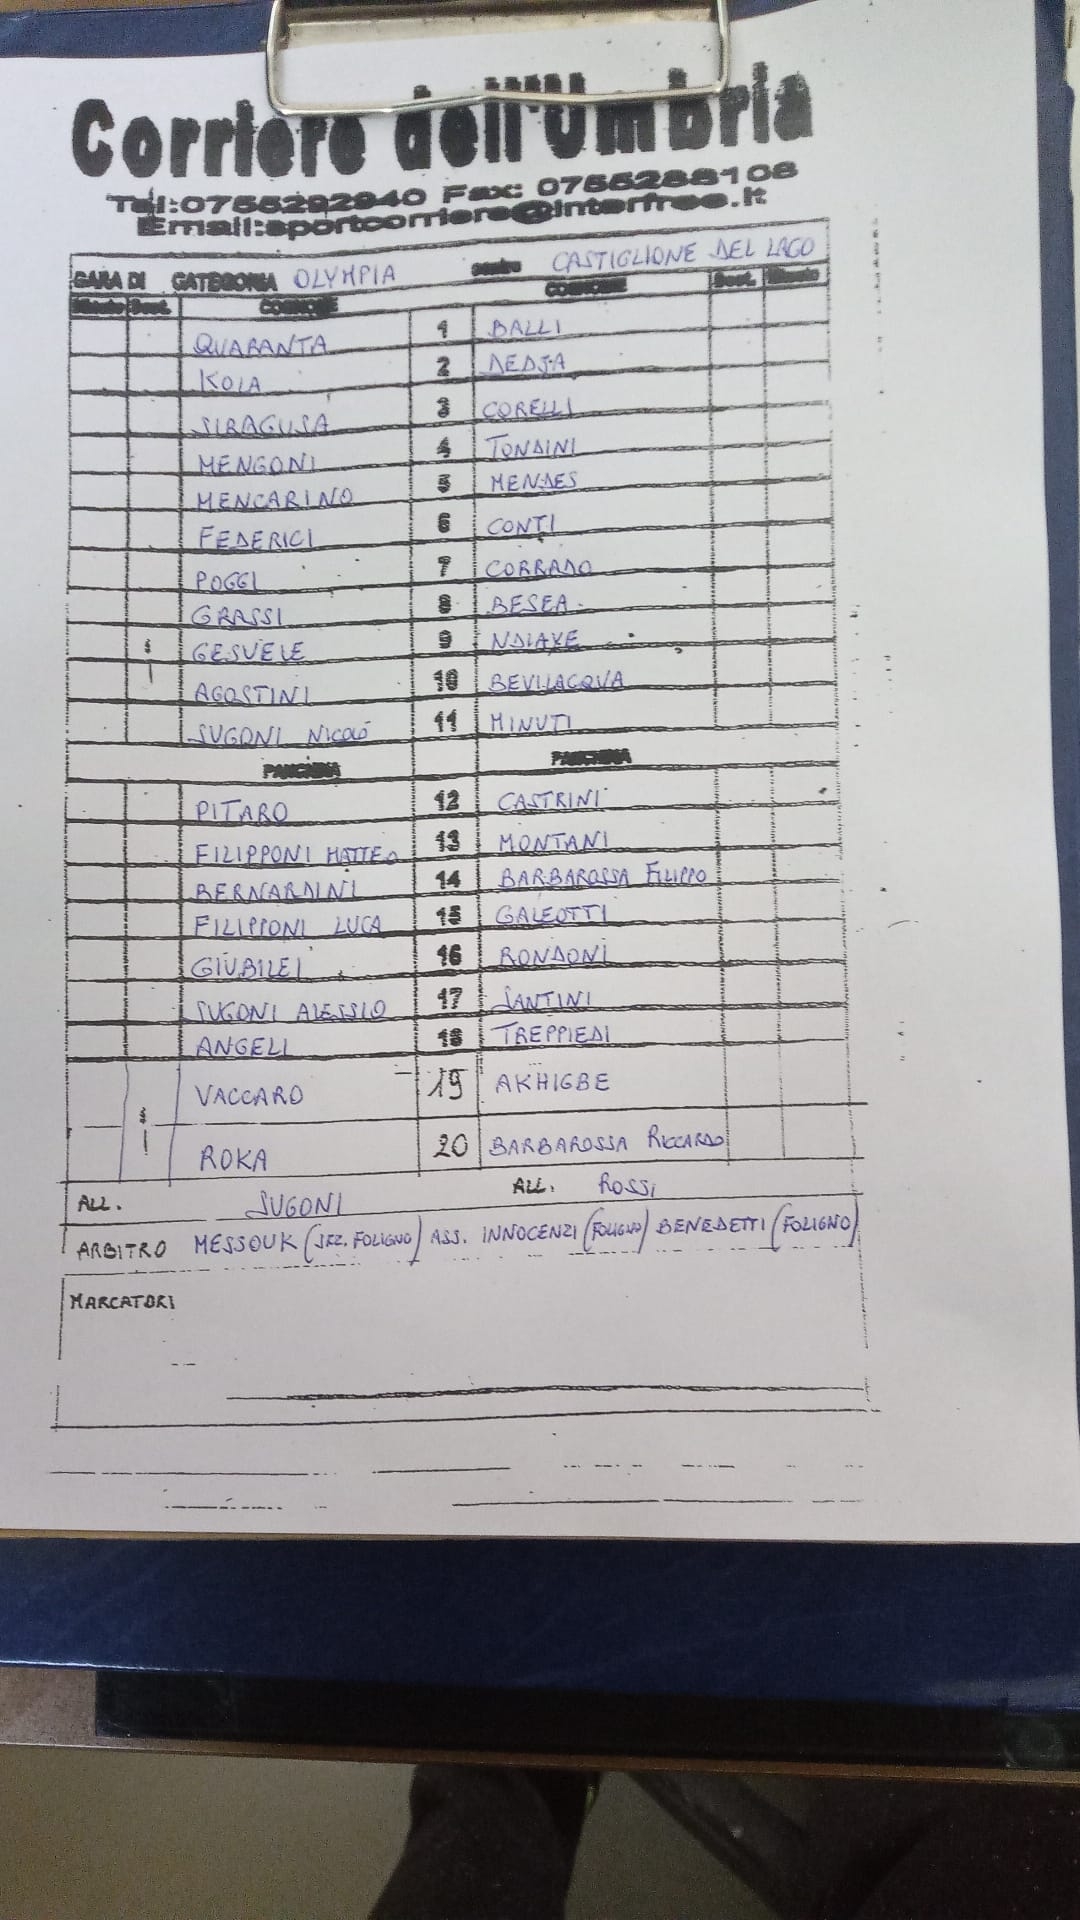 Corriere dell'Umbria
Tel:0755292940 Fax: 0755288108
Email:sportcorriere@interfree.it
GARA DI CATEGORIA OLYMPIA contro CASTIGLIONE DEL LAGO
Minuto Sost. COGNOME COGNOME Sost. Minuto
QUARANTA 1 BALLI
KOLA 2 DEDJA
SIRAGUSA 3 CORELLI
MENGONI 4 TONDINI
MENCARINO 5 MENDES
FEDERICI 6 CONTI
POGGI 7 CORRADO
GRASSI 8 BESEA
GESUELE 9 NDIAYE
AGOSTINI 10 BEVILACQUA
SUGONI NICOLÒ 11 MINUTI
PANCHINA PANCHINA
PITARO 12 CASTRINI
FILIPPONI MATTEO 13 MONTANI
BERNARDINI 14 BARBAROSSA FILIPPO
FILIPPONI LUCA 15 GALEOTTI
GIUBILEI 16 RONDONI
SUGONI ALESSIO 17 SANTINI
ANGELI 18 TREPPIEDI
VACCARO 19 AKHIGBE
ROKA 20 BARBAROSSA RICCARDO
ALL. SUGONI ALL. ROSSI
ARBITRO MESSOUK (SEZ. FOLIGNO) ASS. INNOCENZI (FOLIGNO) BENEDETTI (FOLIGNO)
MARCATORI